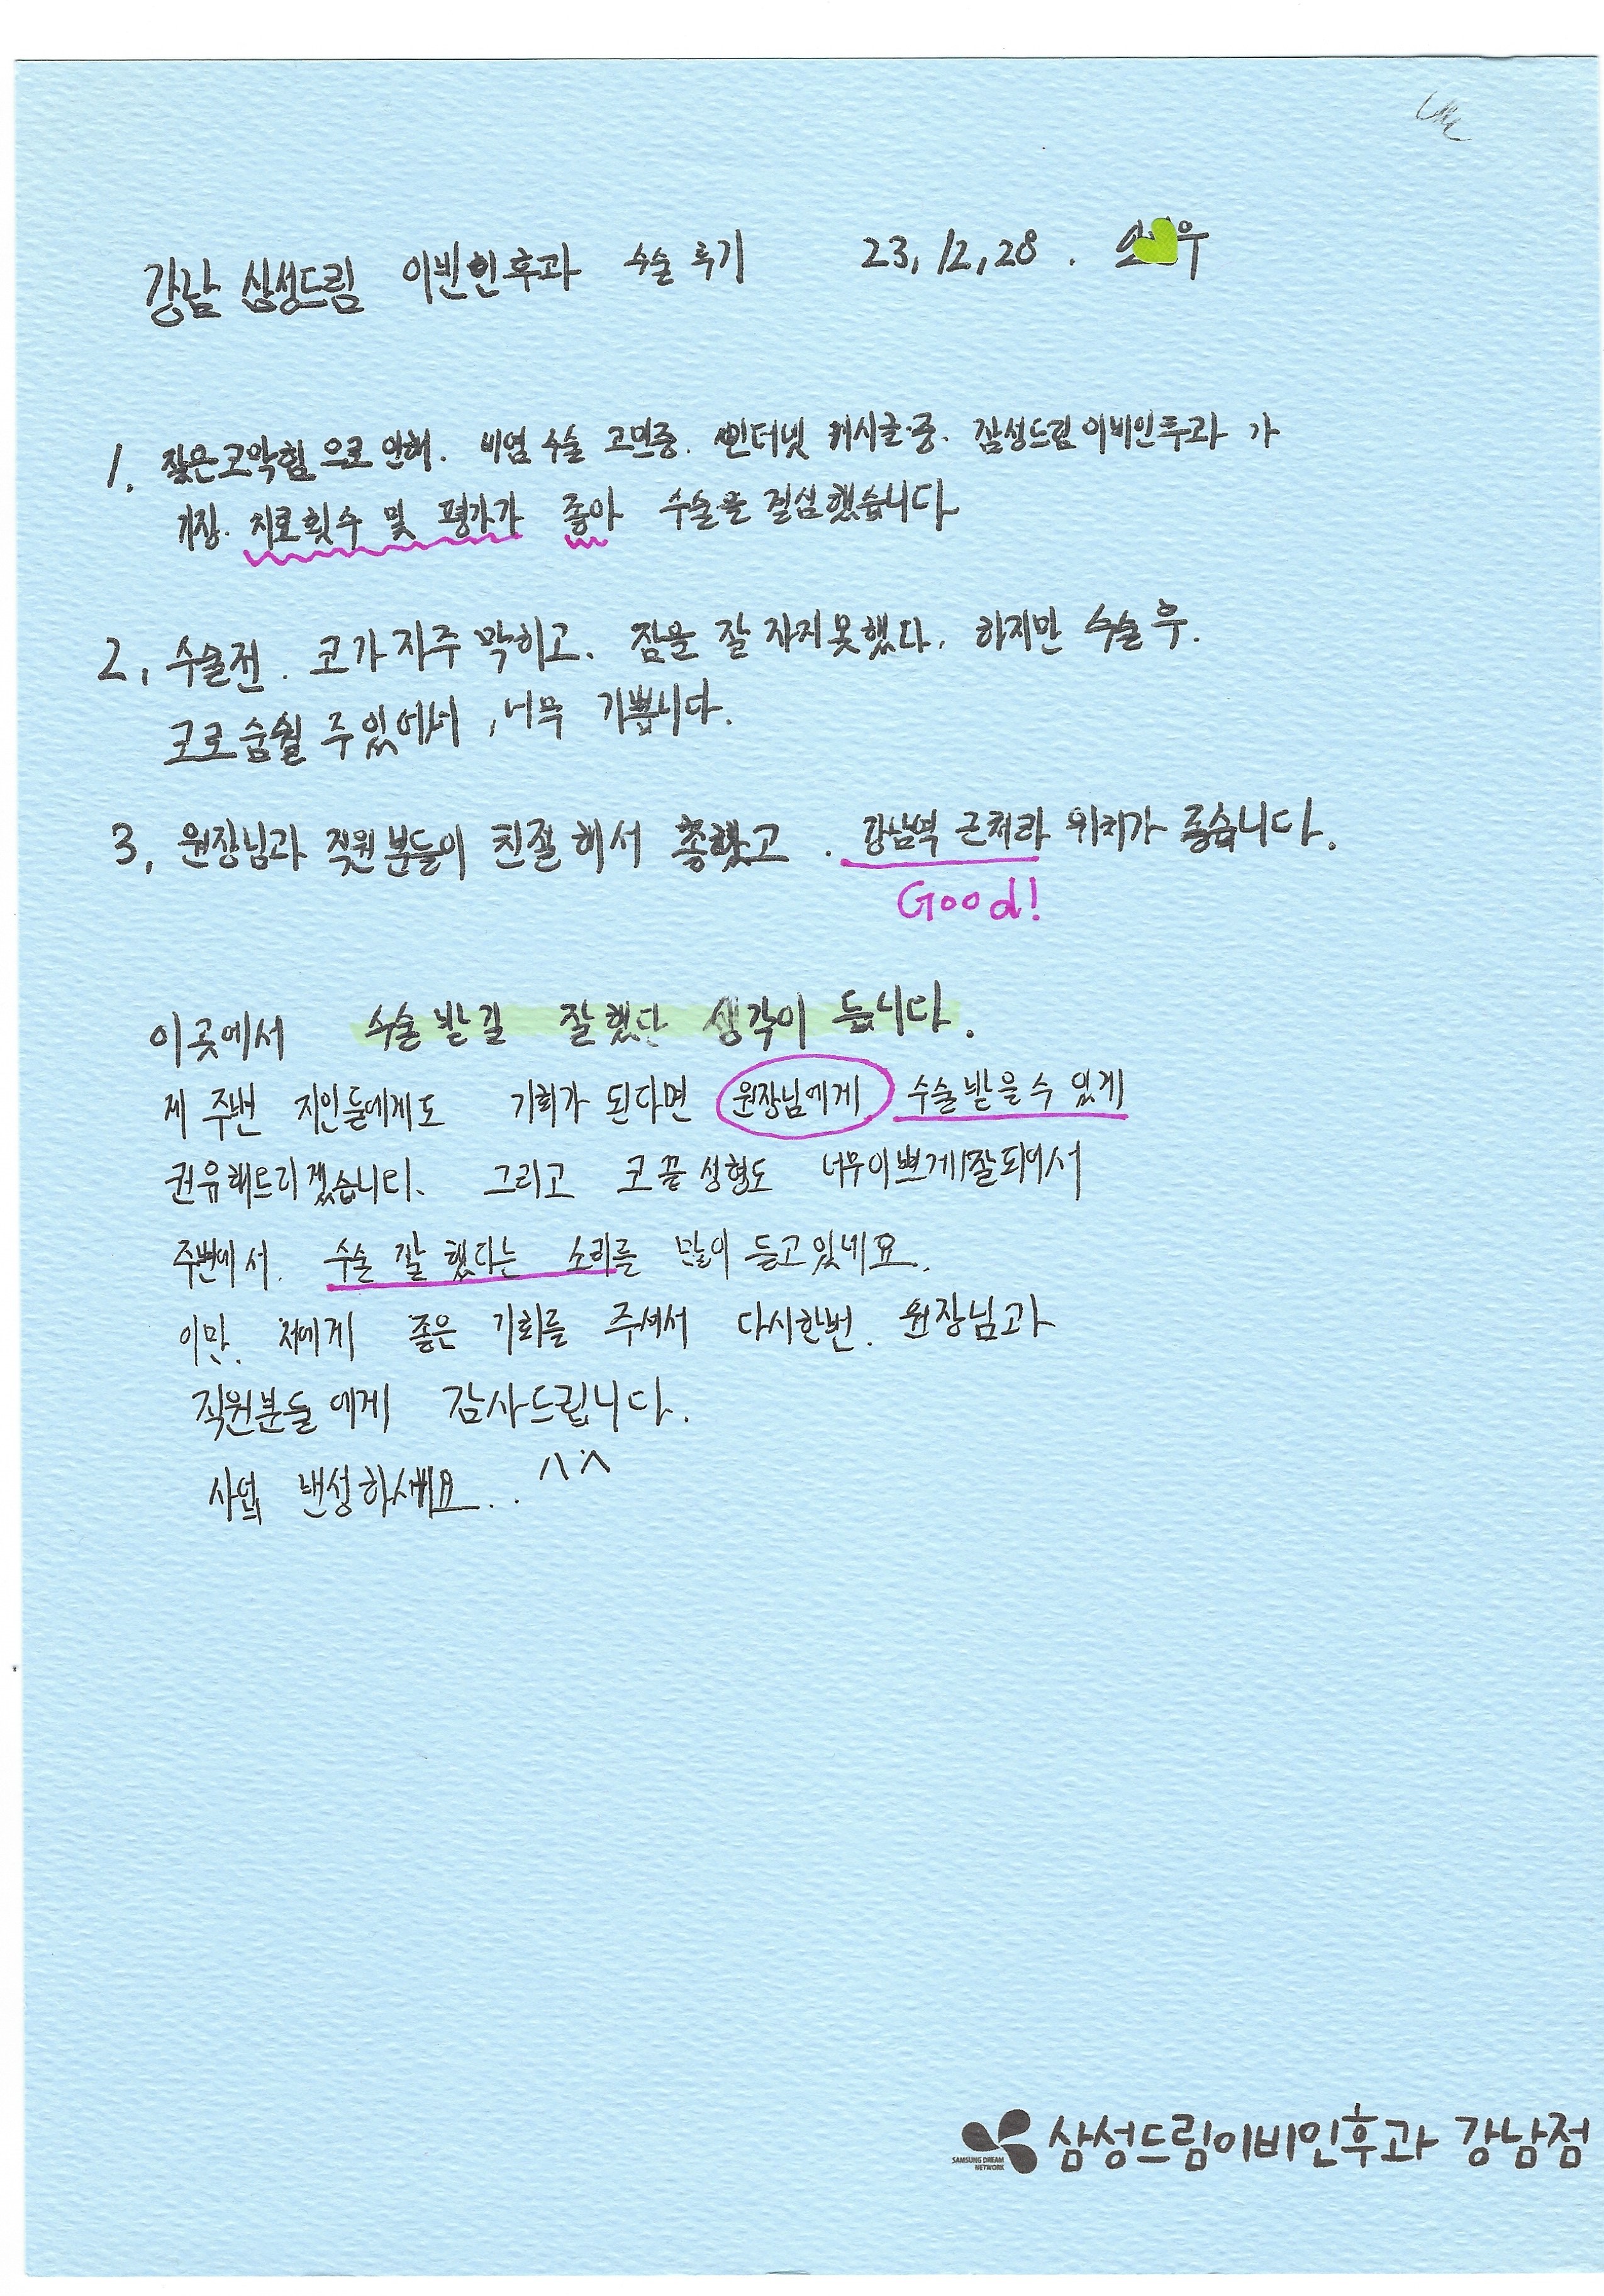 강남 삼성드림 이빈인후과 수술 후기 23, 12, 28 . 우
1. 잦은코막힘 으로 인해. 비염 수술 고민중. 인터넷 게시글 중. 삼성드림이비인후과 가
가장. 치료횟수 및 평가가 좋아 수술을 결심했습니다
2, 수술전. 코가 자주 막히고. 잠을 잘 자지못했다. 하지만 수술 후.
코로 숨쉴 수 있어서, 너무 기쁩니다.
3, 원장님과 직원분들이 친절해서 좋았고. 강남역 근처라 위치가 좋습니다.
Good!
이곳에서 수술받길 잘했다 생각이 듭니다.
제 주변 지인들에게도 기회가 된다면 원장님에게 수술받을 수 있게
권유해드리겠습니다. 그리고 코 끝 성형도 너무이쁘게 잘되어서
주변에서. 수술 잘 했다는 소리를 많이 듣고있네요.
이만. 저에게 좋은 기회를 주셔서 다시한번. 원장님과
직원분들에게 감사드립니다.
사업 번성하세요.. ^^
SAMSUNG DREAM NETWORK 삼성드림이비인후과 강남점